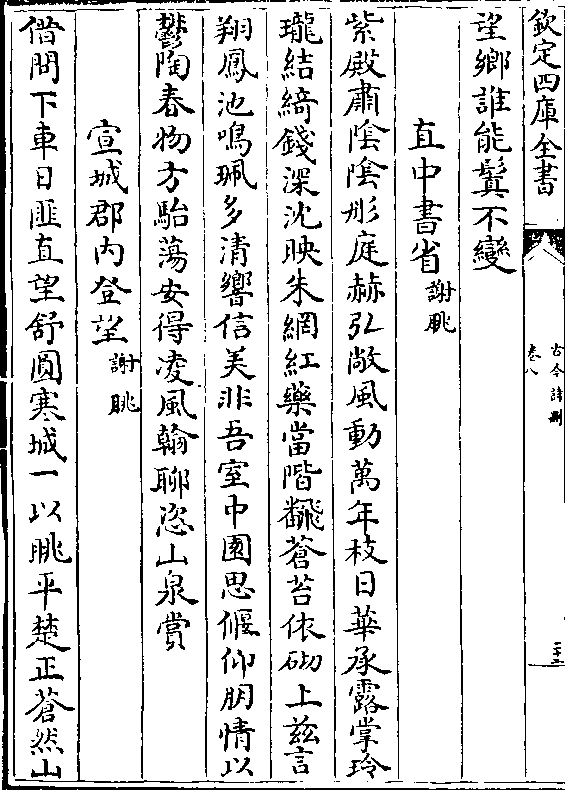 欽定四庫全書
古今詩刪
卷八
二十二
望鄉誰能鬒不變
直中書省謝朓
紫殿肅陰陰彤庭赫弘敞風動萬年枝日華承露掌玲
瓏結綺錢深沈映朱網紅藥當階飜蒼苔依砌上兹言
翔鳳池鳴珮多清響信美非吾室中園思偃仰朋情以
鬱陶春物方駘蕩安得凌風翰聊恣山泉賞
宣城郡内登望謝朓
借問下車日匪直望舒圓寒城一以眺平楚正蒼然山